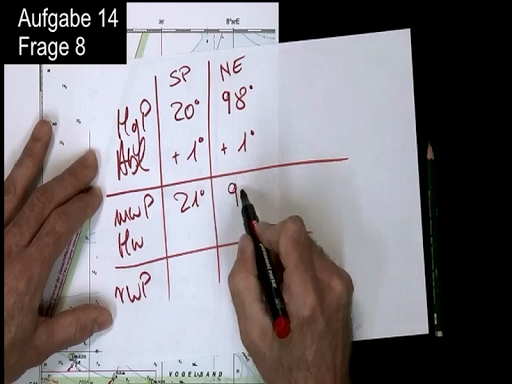 Aufgabe 14
Frage 8
SP NE
MgP 20° 98°
Abl + 1° + 1°
mwP 21° 9
Mw
rwP
VOGELSAND